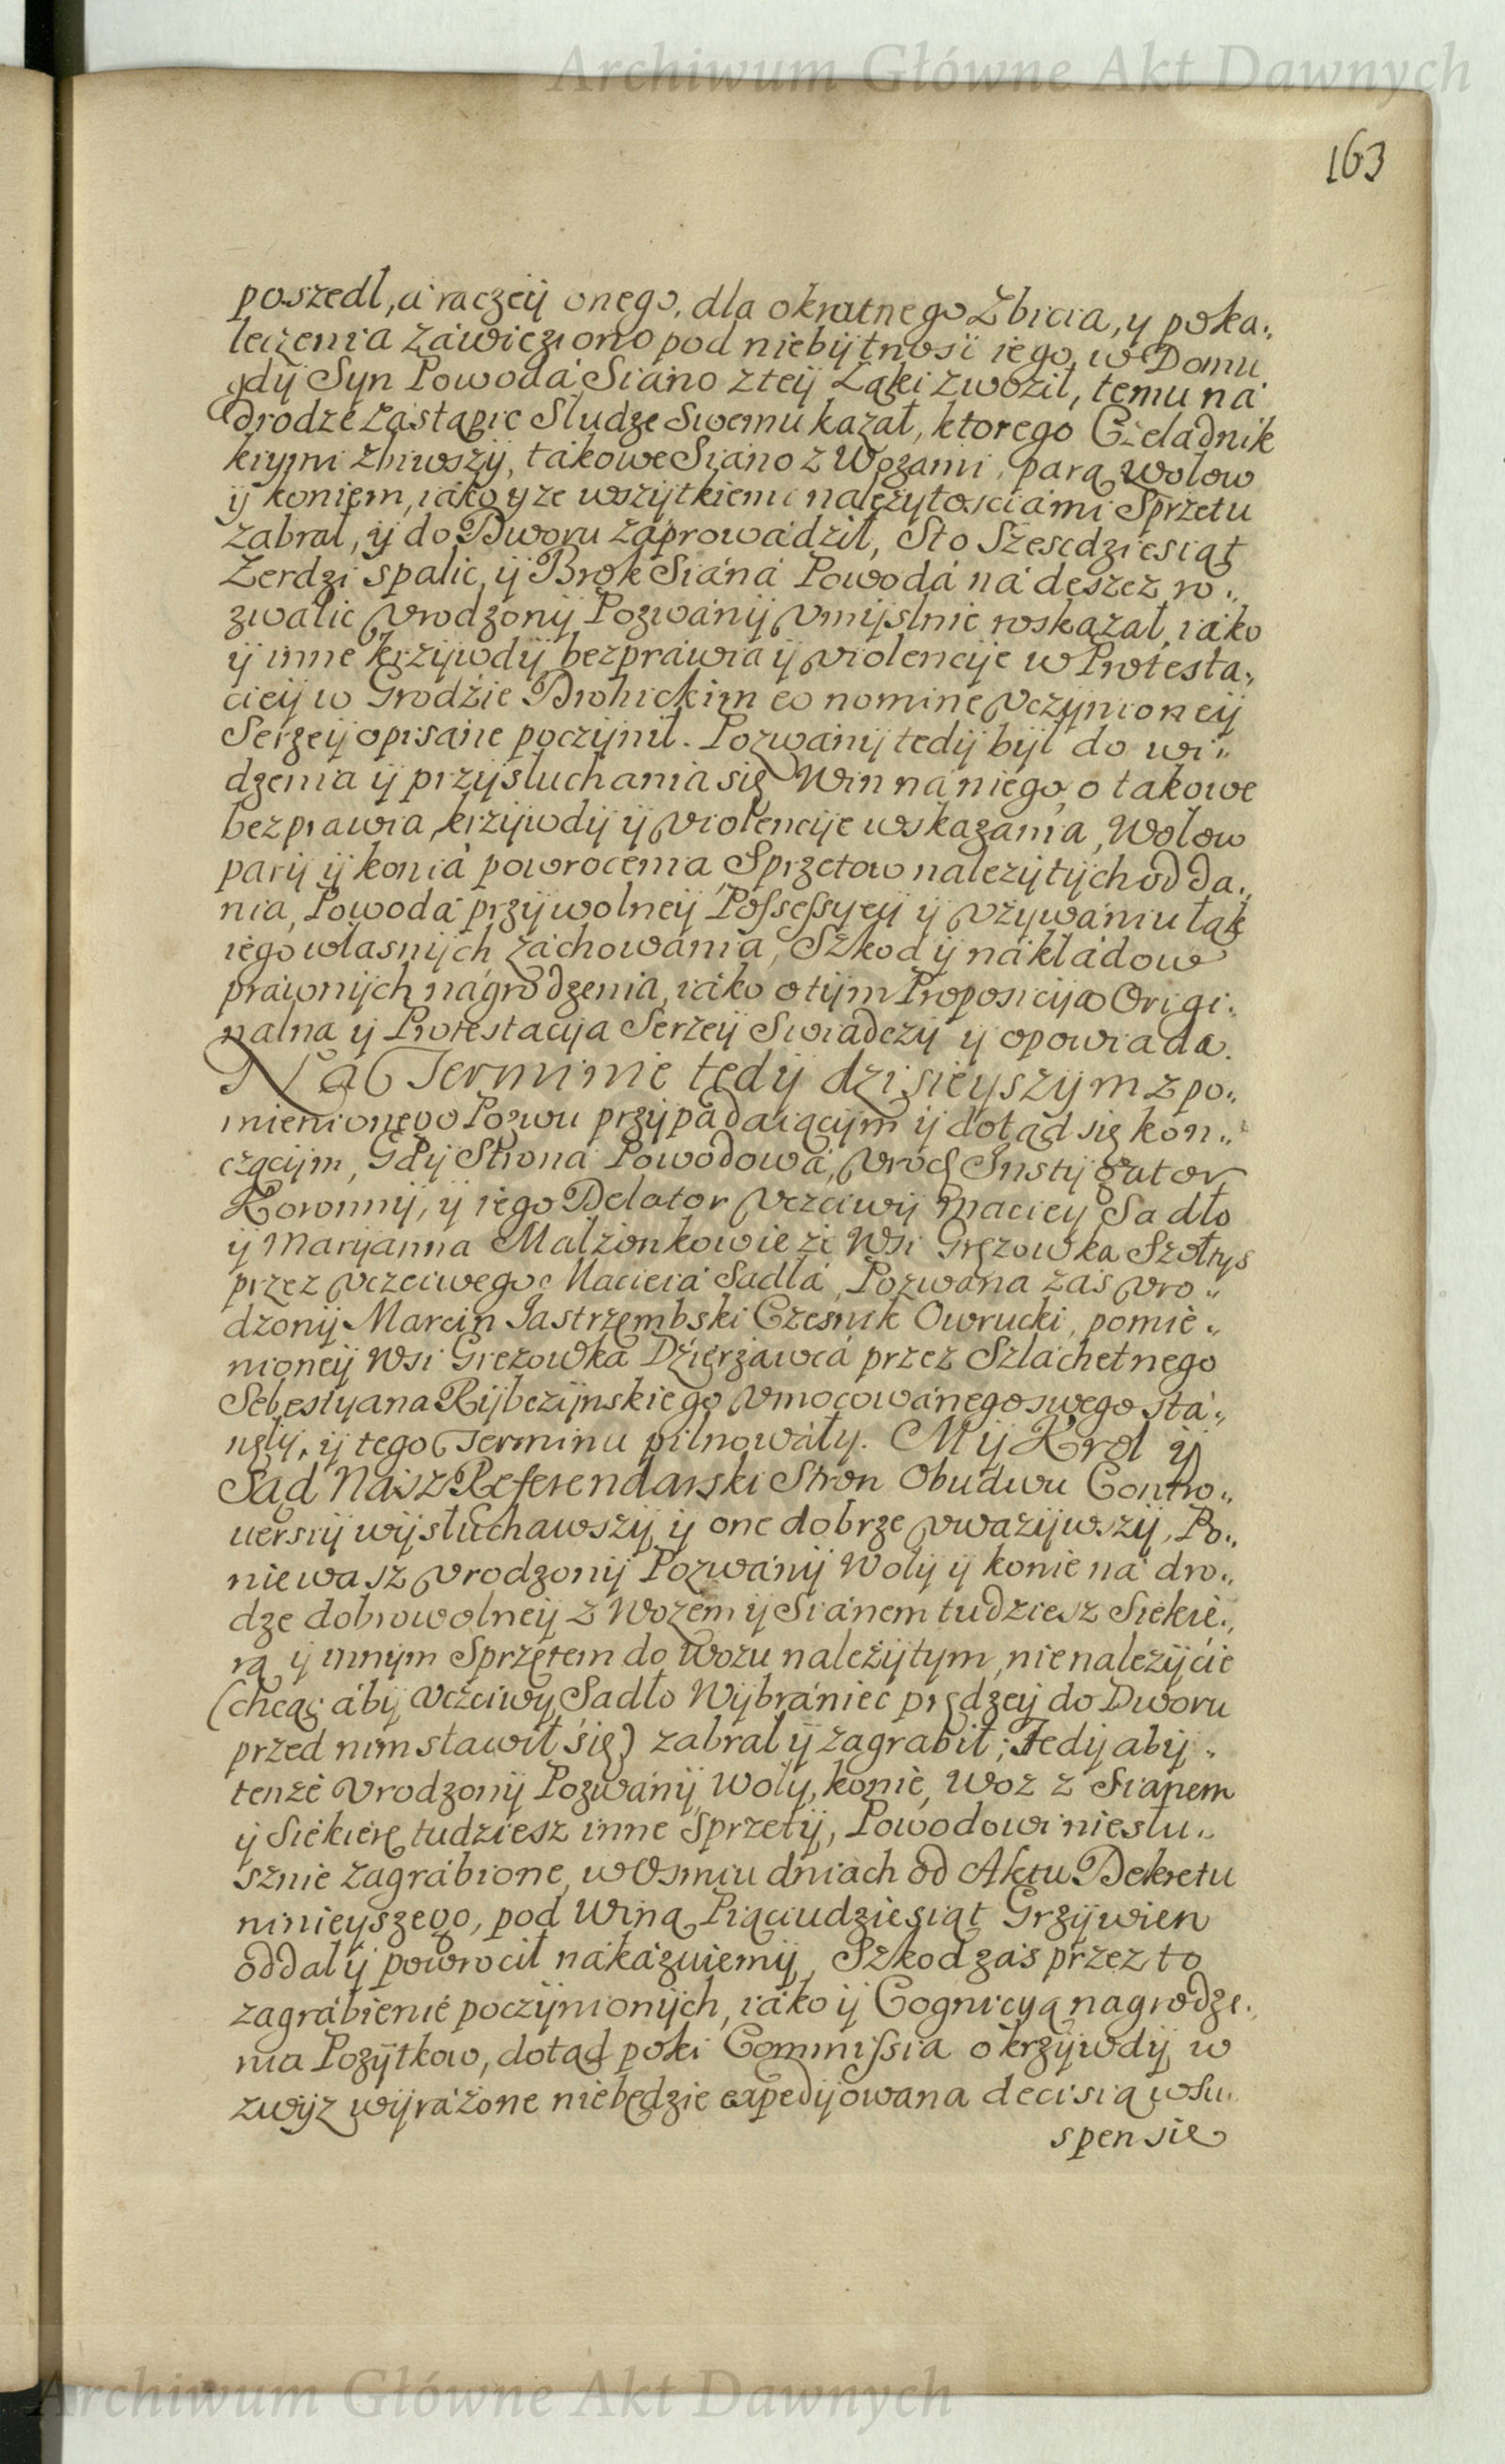 Archiwum Główne Akt Dawnych
163
poszedł, a raczeij onego, dla okrutnego Zbicia, y poka„
leczenia záwieziono pod niebijtnosi iego, w Domu
gdij Sijn Powodá Siáno z teij Łąki zwoził, temu ná
drodze zástąpic Sludze Swemu kazał, ktorego Czeladnik
kiymi zbiwszij, tákowe Siáno z Wozami, parą Wołow
ij koniem, iáko y ze wszijtkiemi należytosciámi Sprzetu
zabrał, ij do Dworu záprowádził, Sto Szescdziesiąt
Żerdzi spalic, ij Brok Siáná Powodá ná deszcz ro„
zwalic Vrodzonij Pozwánij Vmijslnie roskazał, iáko
ij inne krzijwdij bezpráwia ij violencije w Protesta„
cieij w Grodźie Drohickim eo nomine Vczijnioneij
Serzeij opisáne poczijnił. Pozwánij tedij bijł do wi„
dzenia ij przijsłuchania się Win ná niego, o takowe
bezprawia, krzijwdij ij violencije wskazania, Wołow
parij ij koniá powrocenia Sprzetow należijtijch odda„
nia, Powodá przij wolneij Possessyeij ij vżijwániu łąk
iego własnijch záchowánia, Szkod ij nákłádow
práwnijch nágrodzenia, iáko o tijm Proposicija Origi„
nalna ij Protestacija Serzeij Swiadczij ij opowiada.
Ná Terminie tedij dzisieyszijm z po„
mienionego Pozwu przijpádáiącijm ij dotąd się kon„
czącijm, Gdij Stroná Powodowá, Vrodz Instijgator
Koronnij, ij iego Delator Vczciwij Maciey Sadło
ij Maryanna Małżonkowie ze Wsi Gręzowka Szołtys
przez Vczciwego Macieiá Sadłá, Pozwana zás Vro„
dzonij Marcin Jastrzembski Czesnik Owrucki, pomie„
nioneij Wsi Grezowka Dźierżáwcá przez Szláchetnego
Sebestyana Rijbczijnskiego Vmocowánego swego stá„
nęłij, ij tego Terminu pilnowáły. Mij Krol ij
Sąd Nász Referendarski Stron Obudwu Contro„
uersij wijsłuchawszij ij one dobrze vważijwszij, Po„
niewasz Vrodzonij Pozwánij Wołij ij konie ná dro„
dze dobrowolneij z Wozem ij Siánem tudziesz Siekie„
rą ij innym Sprzętem do Wozu należijtym, nienależijcie
(chcąc ábij Vczciwy Sadło Wijbrániec prędzeij do Dworu
przed nim stawił się) zabrał ij zagrabił; Tedij abij
tenże Vrodzonij Pozwánij Wołij, konie, Woz z Sianem
ij Siekierę tudziesz inne Sprzetij, Powodowi niesłu„
sznie zagrábione, w Osmiu dniach od Aktu Dekretu
ninieyszego, pod Winą Pięciudziesiąt Grzijwien
oddał ij powrocił nákázuiemij, Szkod zás przez to
zagrábienie poczijnionijch, iáko ij Cognicyą nagrodze„
nia Pożijtkow, dotąd poki Commissia o krzijwdij w
zwijz wijráżone niebędzie expedijowana decisią w Su„
spensie
Archiwum Główne Akt Dawnych